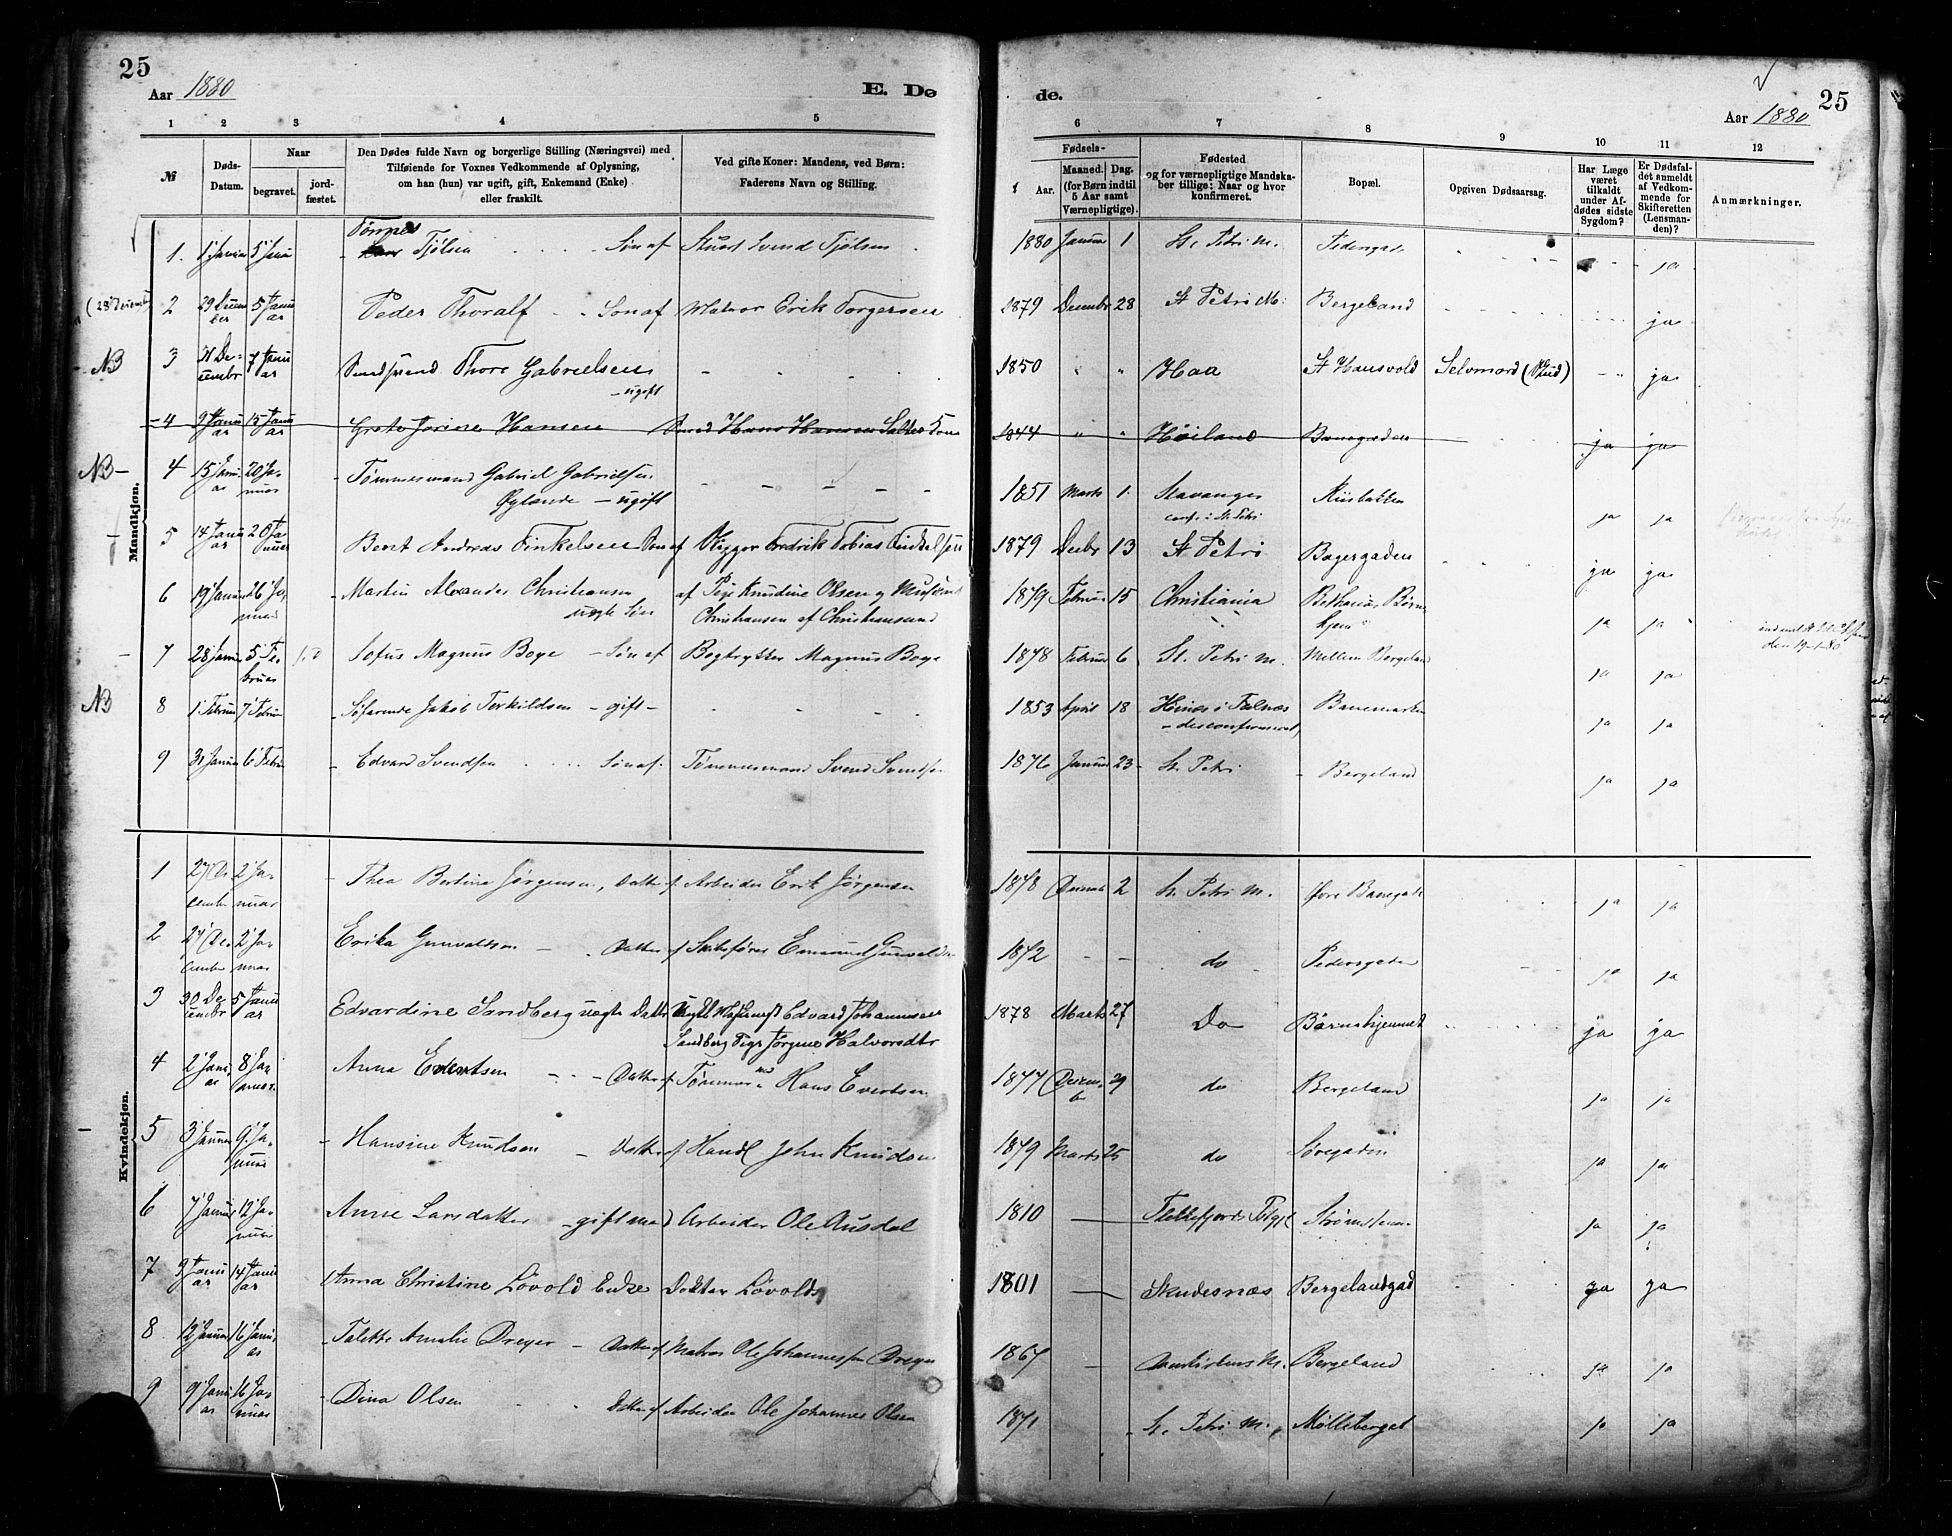 25
Aar 1880
E. Dø
de.
Aar 1880
25
1 2 3 4 5
6 7 8 9 10 11 12
№
Døds-Datum.
Naar
begravet.
jord-fæstet.
Den Dødes fulde Navn og borgerlige Stilling (Næringsvei) med
Tilføiende for Voxnes Vedkommende af Oplysning,
om han (hun) var ugift, gift, Enkemand (Enke)
eller fraskilt.
Ved gifte Koner: Mandens, ved Børn:
Faderens Navn og Stilling.
Fødsels-
Aar.
Maaned. Dag.
(for Børn indtil
5 Aar samt
Værnepligtige).
Fødested
og for værnepligtige Mandska-
ber tillige: Naar og hvor
konfirmeret.
Bopæl.
Opgiven Dødsaarsag.
Har Læge
været
tilkaldt
under Af-
dødes sidste
Sygdom?
Er Dødsfal-
det anmeldt
af Vedkom-
mende for
Skifteretten
(Lensman-
den)?
Anmærkninger.
Mandkjøn.
1. 1 Januar 5 Januar Tjølsen Søn af Svend Tjølsen 1880 Januar 1 St. Petri M. Pedersgad. ja
2 29 December 5 Januar Peder Thoralf Søn af Matros Erik Torgersen 1879 Decembr 28 St Petri M: Bergeland ja
NB 3 31 Decembr 7 Januar Thore Gabrielsen - ugift 1850 Haa St Hansvold Selvmord ja
4 9 Januar 15 Januar Grete Jorine Hansen Hans Hansen 1844 Høiland Banegaden ja ja
NB 4 15 Januar 20 Januar Tømmermand Gabriel Gabrielsen
- ugift 1851 Marts 1 Stavanger
conf. i St. Petri ja ja
5 14 Januar 20 Januar Bent Andreas Finkelsen Søn af Vigger Fredrik Tobias Finkelsen 1879 Decbr 13 St Petri Bagergaden ja ja
6 19 Januar 26 Januar Martin Alexander Christiansen
uægte Søn af Pige Knudine Olsen og
Christiansen af Christiansund 1879 Februar 15 Christiania Bethanias Børnehjem ja ja
7 28 Januar 5 Februar Sofus Magnus Boye - Søn af Bogtrykker Magnus Boye 1878 Februar 6 St. Petri M. Mellem Bergeland ja ja
NB 8 1 Februar 7 Februar Søfarende Jakob Terkildsen - gift - 1853 April 18 Falnæs
ja ja
9 31 Januar 6 Februar Edvard Svendsen Søn af Tømmermand Svend Svendsen 1876 Januar 23 St. Petri Bergeland ja ja
Kvindekjøn.
1 27 December 2 Januar Thea Bertine Jørgensen, Datter af Arbeider Erik Jørgensen 1878 2 St. Petri M. Øvre Banegade ja ja
2 27 December 2 Januar Erika Gunvaldsen Datter af Skibsfører Emanuel Gunvaldsen 1872 do Pedersgaden ja ja
3 30 Decembr 5 Januar Edvardine Sandberg uægte Datter Edvard Johannesen
Sandberg Pige Jørgine Halvorsdtr 1878 Marts 27 Do Børnehjemmet ja ja
4 2 Januar 8 Januar Anna Evertsen - Datter af Tømmermd Hans Evertsen 1877 29 do Bergeland ja ja
5 3 Januar 9 Januar Hansine Knudsen - Datter af Handl John Knudsen 1879 Marts 25 do Søregaden ja ja
6 7 Januar 12 Januar Anne Larsdatter - gift med Arbeider Ole Ausdal 1810 Flekkefjords ja ja
7 9 Januar 14 Januar Anna Christine Løvold Enke Doktor Løvolds 1801 Skudesnæs Bergelandgad ja ja
8 12 Januar 16 Januar Talette Amalie Dreyer - Datter af Matros Ole Johannessen Dreyer 1867 Bergeland ja ja
9 9 Januar 16 Januar Dina Olsen Datter af Arbeider Ole Johannes Olsen 1871 St. Petri M. Mølleberget ja ja